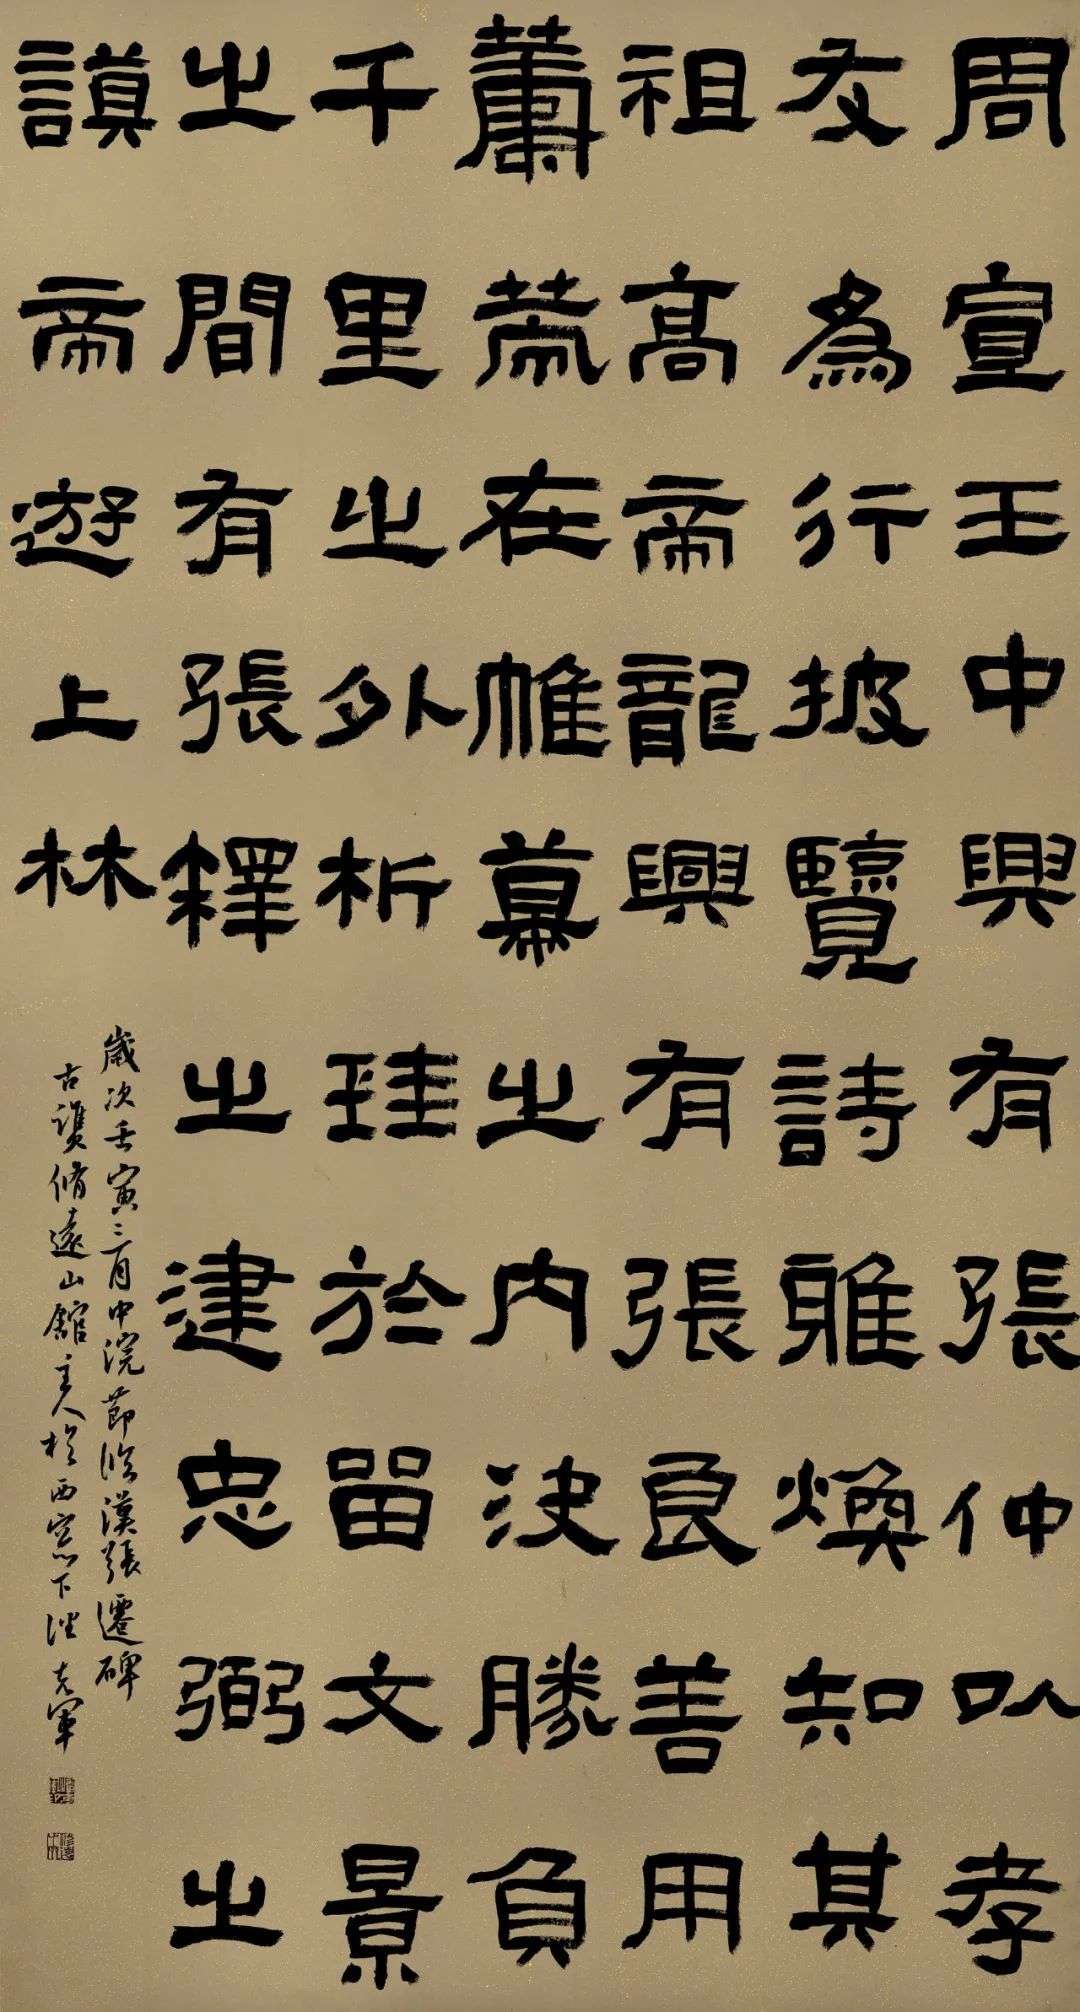 周宣王中興有張仲以孝
友為行披覽詩雅煥知其
祖高帝龍興有張良善用
籌策在帷幕之內決勝負
千里之外析珪於留文景
之間有張釋之建忠弼之
謨帝遊上林
歲次壬寅三月中浣節臨漢張遷碑
古譙脩遠山館主人於西窓下克軍